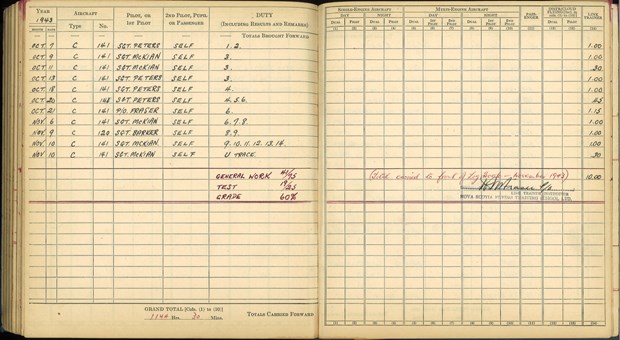 YEAR 1943 AIRCRAFT PILOT, OR 1ST PILOT 2ND PILOT, PUPIL OR PASSENGER DUTY (INCLUDING RESULTS AND REMARKS) SINGLE-ENGINE AIRCRAFT MULTI-ENGINE AIRCRAFT PASSENGER LINK TRAINER
MONTH DATE Type No. DAY NIGHT DAY NIGHT
DUAL PILOT DUAL PILOT DUAL 1ST PILOT 2ND PILOT DUAL 1ST PILOT 2ND PILOT DUAL PILOT
TOTALS BROUGHT FORWARD
OCT. 7 C 141 SGT. PETERS SELF 1. 2. 1.00
OCT. 9 C 141 SGT. MCKIAN SELF 3. 1.00
OCT. 11 C 141 SGT. MCKIAN SELF 3. .30
OCT. 13 C 141 SGT. PETERS SELF 3. 1.00
OCT. 18 C 141 SGT. PETERS SELF 4. 1.00
OCT. 20 C SGT. PETERS SELF 4. 5. 6. .45
OCT. 21 C 141 P/O. FRASER SELF 6. 1.15
NOV. 6 C 141 SGT. MCKIAN SELF 6. 7. 8. 1.00
NOV. 9 C 120 SGT. BARKER SELF 8. 9. 1.00
NOV. 10 C 141 SGT. MCKIAN SELF 9. 10. 11. 12. 13. 14. 1.00
NOV. 10 C 141 SGT. MCKIAN SELF U TRACK. .30
GENERAL WORK (Total carried to front of Log Book - November 1943) 10.00
TEST
GRADE 60%
LINK TRAINER INSTRUCTOR
NOVA SCOTIA FLYING TRAINING SCHOOL, LTD.
GRAND TOTAL [Cols. (1) to (10)]
1144 Hrs. 30 Mins. TOTALS CARRIED FORWARD
(1) (2) (3) (4) (5) (6) (7) (8) (9) (10) (11) (12) (13) (14)